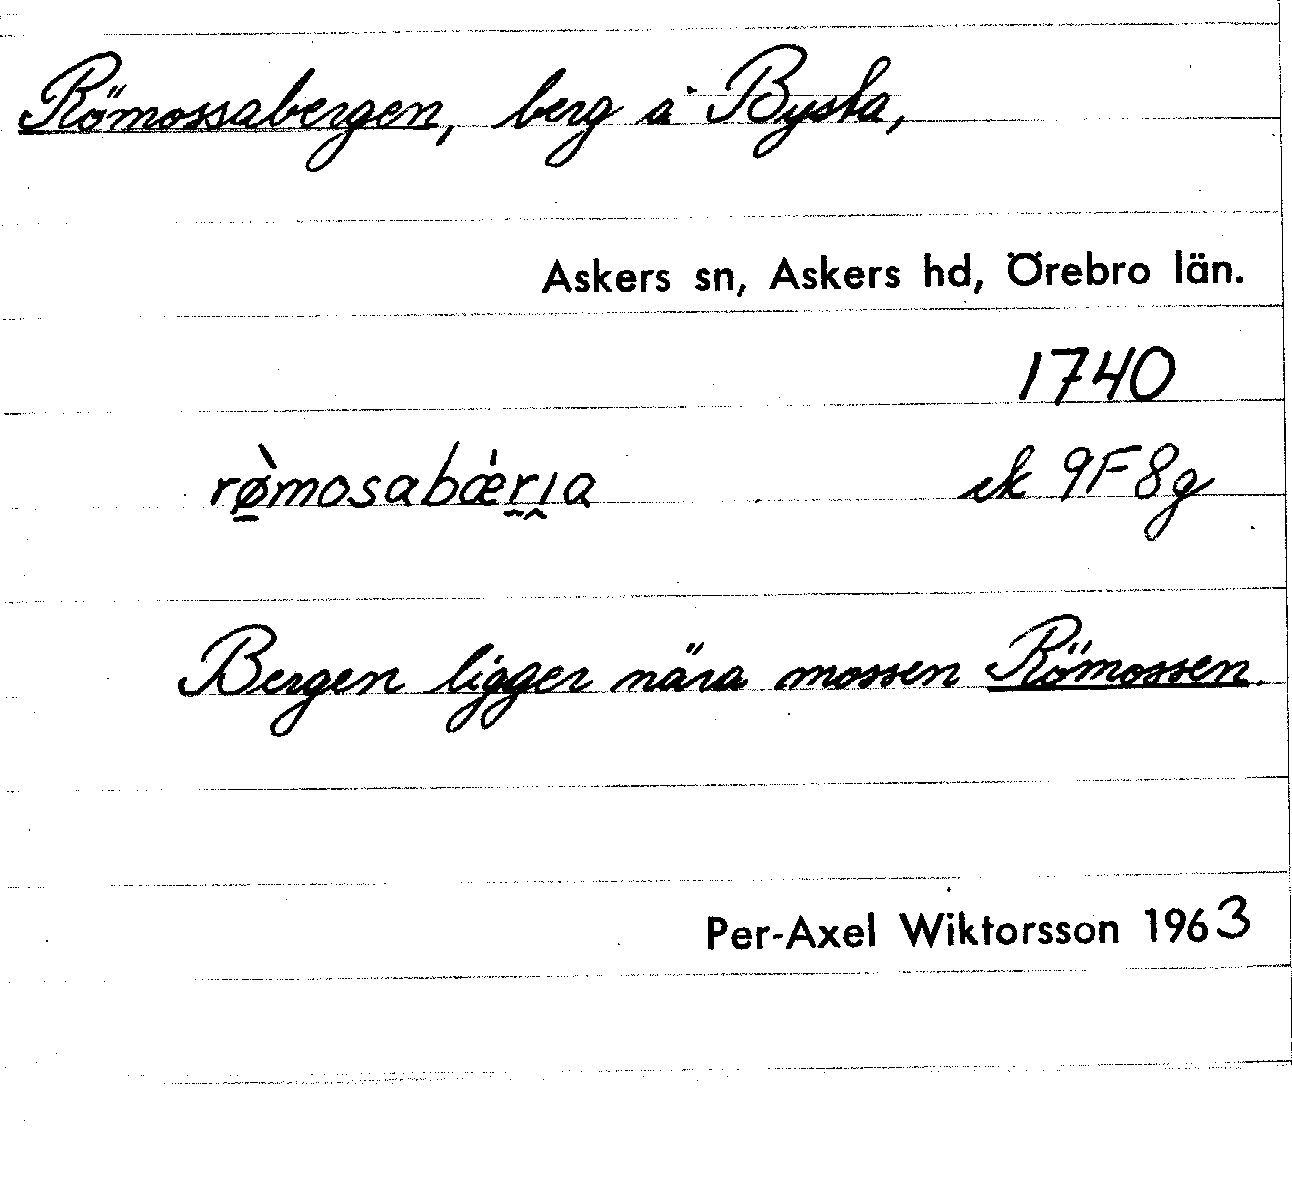 Römossabergen, berg å Bysta,
Askers sn, Askers hd, Örebro län.
1740
rø̀mosabǽrıa ek 9F8g
Bergen ligger nära mossen Römossen.
Per-Axel Wiktorsson 1963